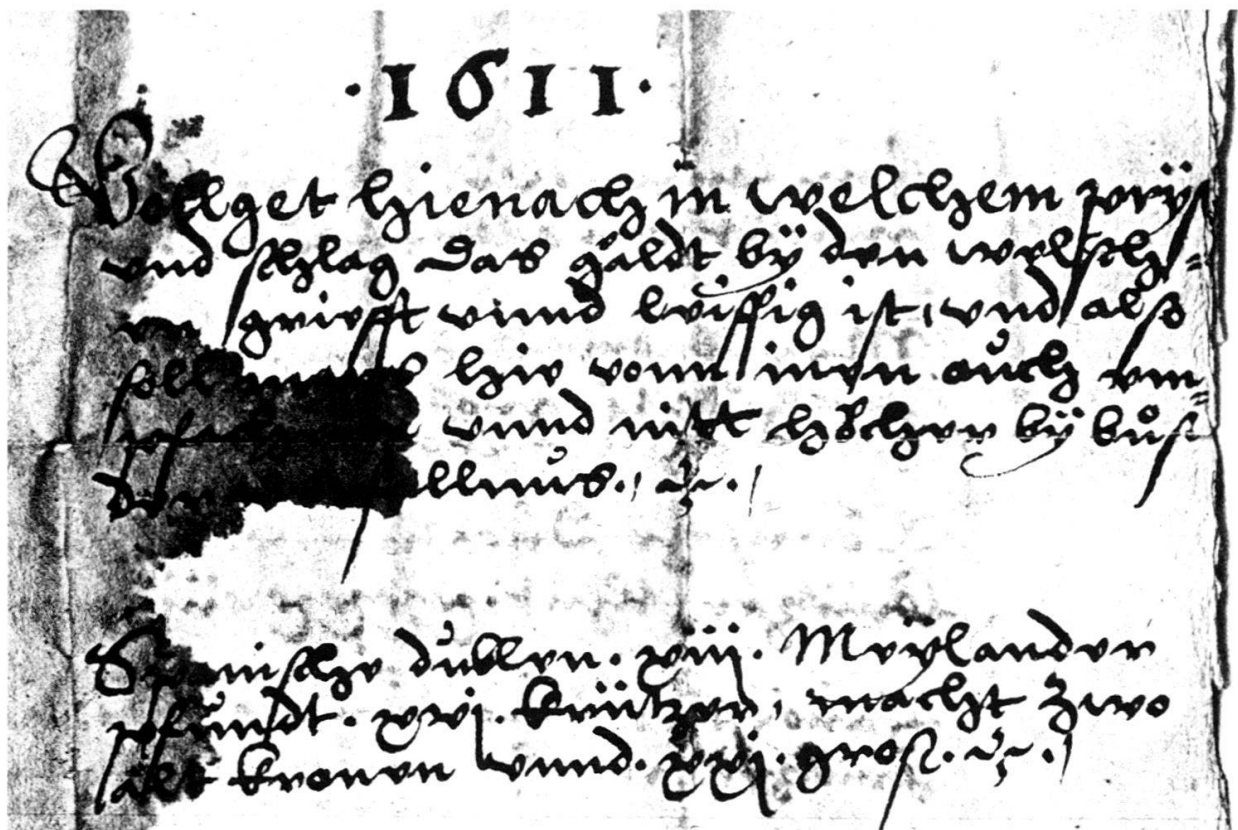 ·1611·
Vollget hienach in welchem prÿß
vnd schlag das gäldt bÿ den welsch=
grüefft vnnd leüffig ist, vnd also
soll hie vonn inen auch em=
vnnd nitt höcher bÿ buͦß

Spanische dublen. xiij. Meÿlander
pfundt. xvj. krützer, macht zwo
alt kronen vnnd. xxj. groß. ꝛc.